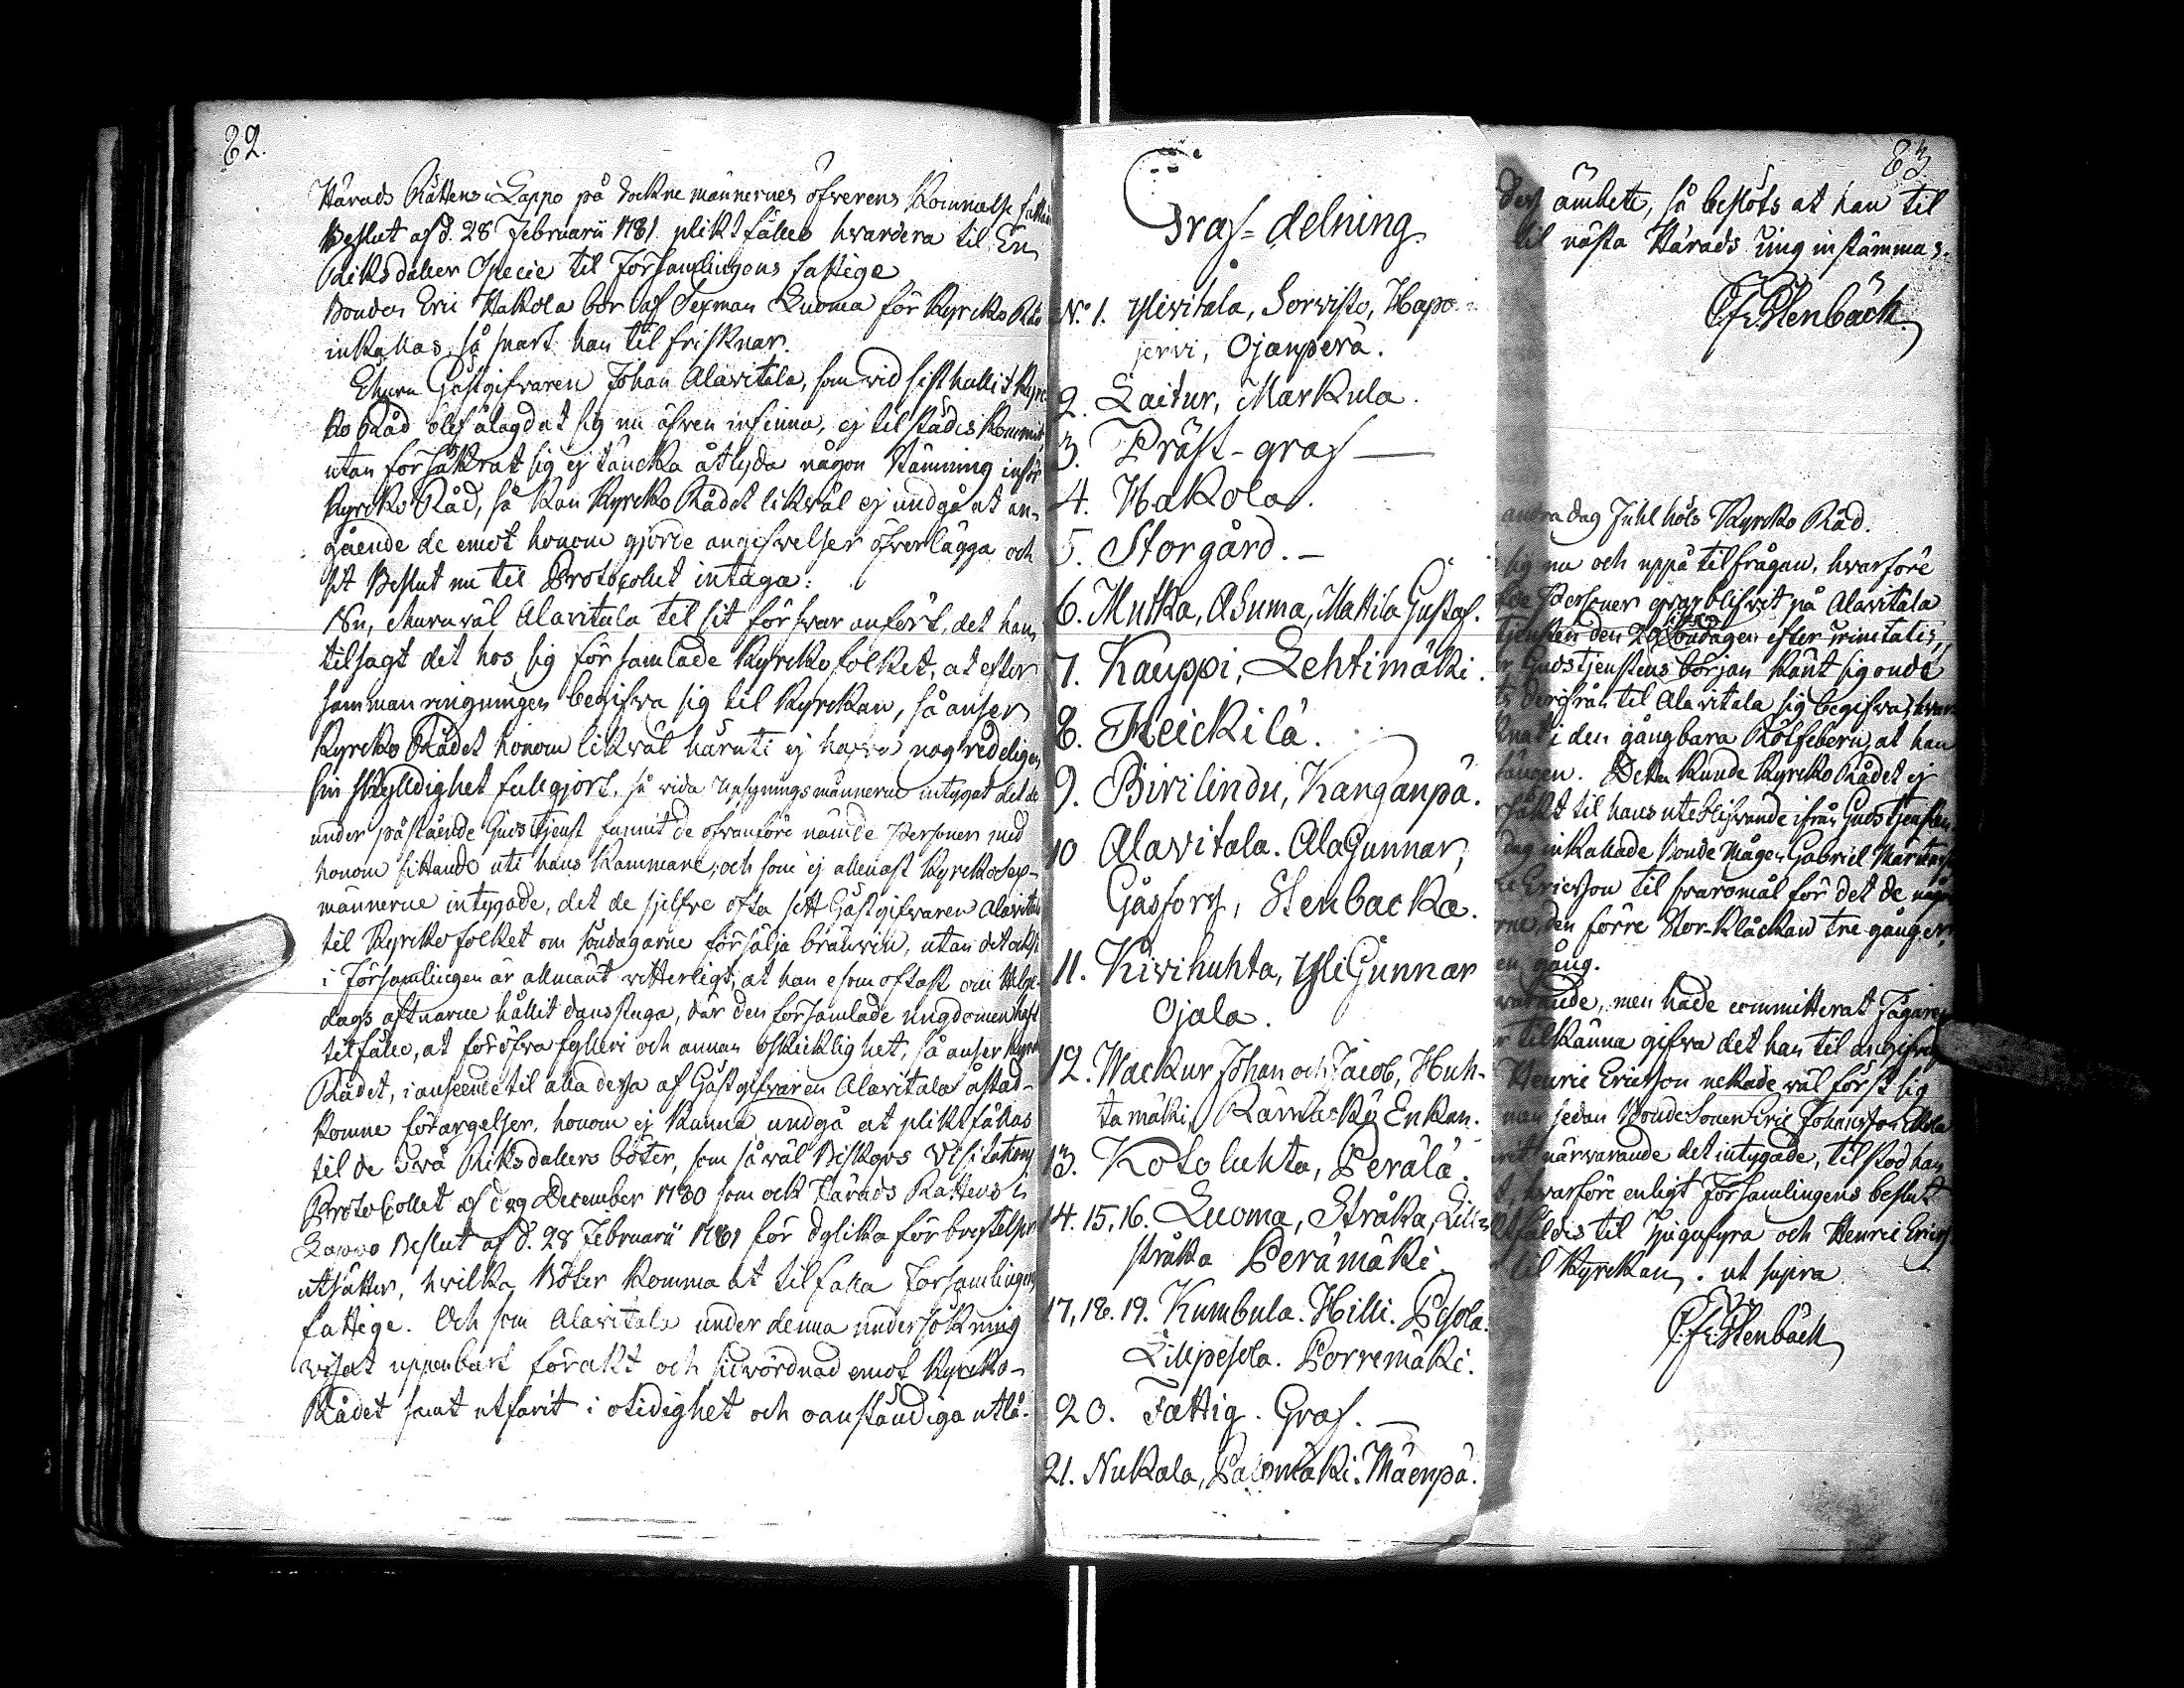 82.
Härads Rättens i Lappo på Sockne männernes öfverens Kommelse fattade
Beslut af d. 28 Februarii 1781 pliktfälles hwardera til En
Riksdaler Specie til Församlingens fattige
Bonden Eric Hakola bör af Sexman Luoma för Kyrcko Råd
inkallas, så snart han til frisknar.
Ehuru Gästgifvaren Johan Alavitala, som vid sisthållit Kyrc-
ko Råd blef ålagd at sig nu äfven infinna, ej tilstädes kommit,
utan försäkrat sig ej täncka åtlyda någon Stämning inför
Kyrcko Råd, så kan Kyrcko Rådet likväl ej undgå at an-
gående de emot honom gjorde angifvelser öfverlägga och
sit Beslut nu til Protocollet intaga:
1§n, ehuruväl Alavitala til sit försvar anfört, det han
tilsagt det hos sig församlade Kyrckofolket, at efter
sammanringningen begifva sig til Kyrckan, så anser
Kyrcko Rådet honom likväl häruti ej hafva nog redeligen
sin skylldighet fullgjort, så vida Upsyningsmännerne intygat det de
under påstående Gudstjenst funnit de ofvanföre nämde Personer med
honom sittande uti hans Kammare, och som ej allenast Kyrckosex-
männerne intygade, det de sjelfve ofta sett Gästgifvaren Alavitala
til Kyrckofolket om Söndagarne försälja bränvin, utan det ock
i Församlingen är allmänt vitterligt, at han esomoftast om Helge-
dags aftnarne hållit dansstuga, där den församlade ungdomen haft
tilfälle, at föröfva fylleri och annan oskicklighet, så anser Kyrcko
Rådet, i anseende til alla dessa af Gästgifvaren Alavitala åstad-
komne förargelser, honom ej kunna undgå at pliktfällas
til de två Riksdalers böter, som såväl Biskops Visitations
Protocollet af d 29 December 1780 som ock Härads Rättens i
Lappo Beslut af d. 28 Februarii 1781 för dylika förbrytelser
utsätter, hvilka Böter komma at tilfalla Församlingens
fattige. Och som Alavitala under denna undersökning
visat uppenbart förakt och sidvördnad emot Kyrcko-
Rådet samt utfarit i otidighet och oanständiga utlå-
Graf-delning.
No 1. Ylivitala, Sorvisto, Hapo-
jervi, Ojanperä.
2. Laitur, Markula.
3. Präst-graf —
4. Hakola.
5. Storgård. —
6. Mutka, Asuma, Mattila Gustaf.
7. Kauppi, Lehtimäki.
8. Heickilä.
9. Birilindu, Kanganpä.
10 Alavitala. AlaGunnar,
Gåsfors, Stenbacka.
11. Kivihuhta, YliGunnar
Ojala.
12. Wackur Johan och Jacob, Huh-
tamäki, Rämäckö Enkan.
13. Kotoluhta, Perälä.
14. 15, 16. Luoma, Stråka, Lill-
stråka Perämäki.
17, 18. 19. Kumbula. Hilli. Pesola.
Lillpesola. Porremäki.
20. Fattig. Graf. —
21. Nukala, Palomäki. Mäenpä.
83
des ämbete, så beslöts at han til
til nästa Härads ting instämmas.
C. Fr. Stenbäck
andra dag Juhl höls Kyrcko Råd.
sig nu och uppå tilfrågan, hvarföre
de Personer qvarblifvit på Alavitala
tjensten den 20 Söndagen efter Trinitatis,
Gudstjenstens början känt sig ondt
derifrån til Alavitala sig begifva, hvar
i den gångbara Rötfebern, at han
sången. Detta kunde Kyrcko Rådet ej
til hans uteblifvande ifrån Gudstjensten
dag inkallade Bonde Mågen Gabriel
Ericsson til svaromål för det de
den förre Stor-Kläckan tre gånger
en gång.
varande, men hade committerat
tilkänna gifva det han til angifvn
Henric Ericsson nekade väl först sig
man sedan Bonde Sonen Eric Johansson
närvarande det intygade, tilstod han
hvarföre enligt Församlingens beslut
fäldes til Tjugufyra och Henric Erics
til Kyrckan. ut supra
C. Fr. Stenbäck